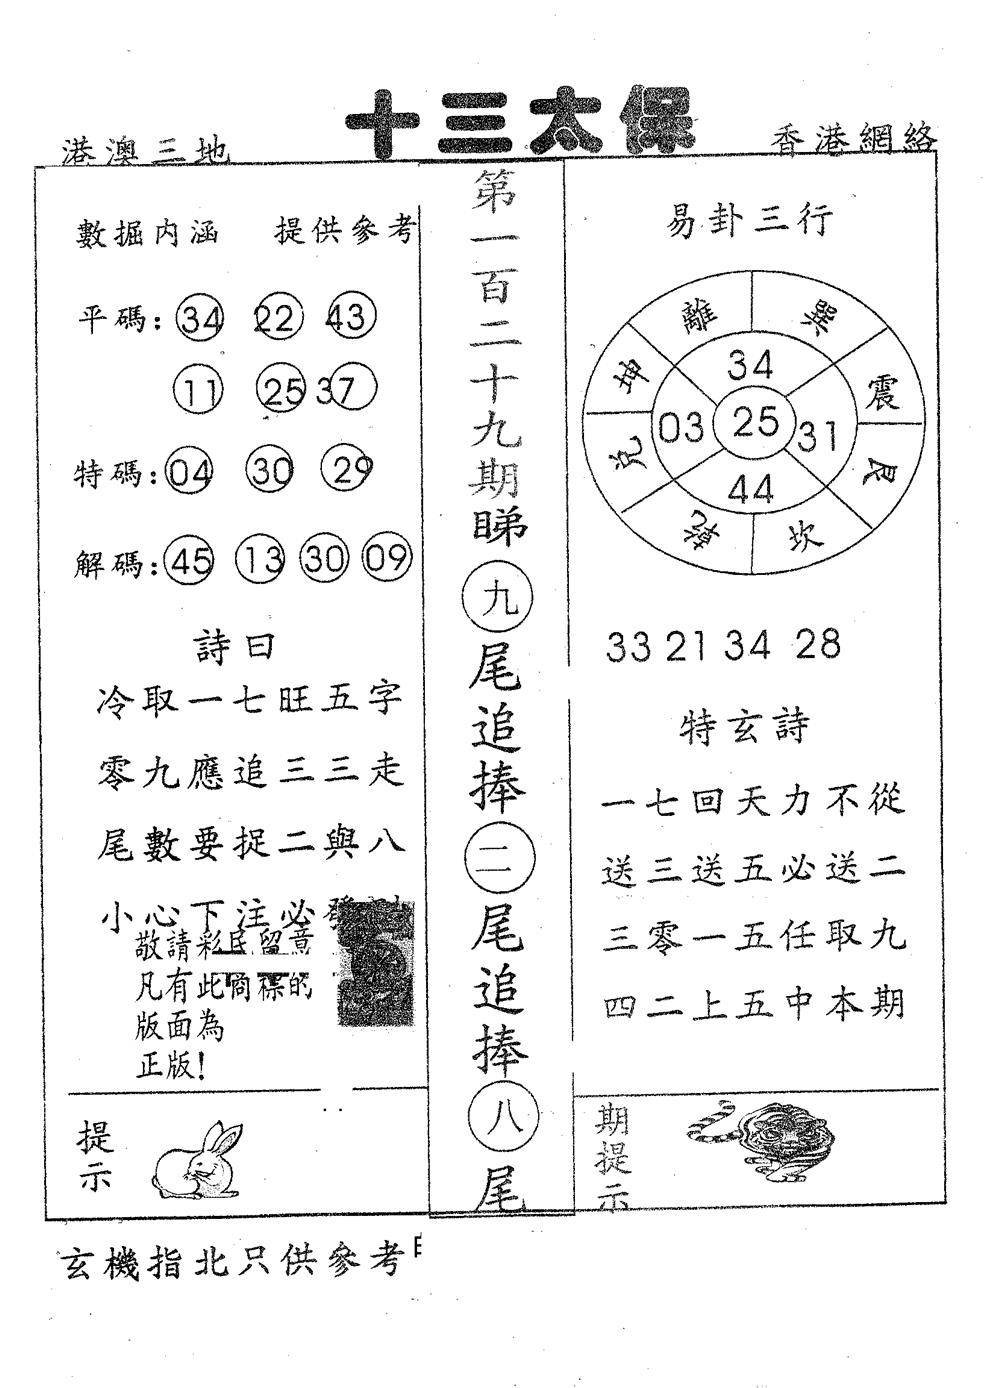 港澳三地
十三太保
香港網絡
數掘内涵 提供參考
平碼: 34 22 43
11 25 37
特碼: 04 30 29
解碼: 45 13 30 09
詩曰
冷取一七旺五字
零九應追三三走
尾數要捉二與八
小心下注必發
敬請彩民留意
凡有此商標的
版面為
正版!
提示
第一百二十九期睇九尾追捧二尾追捧八尾
易卦三行
離 巽
坤 震
兌 艮
乾 坎
34
03 25 31
44
33 21 34 28
特玄詩
一七回天力不從
送三送五必送二
三零一五任取九
四二上五中本期
期提示
玄機指北只供參考